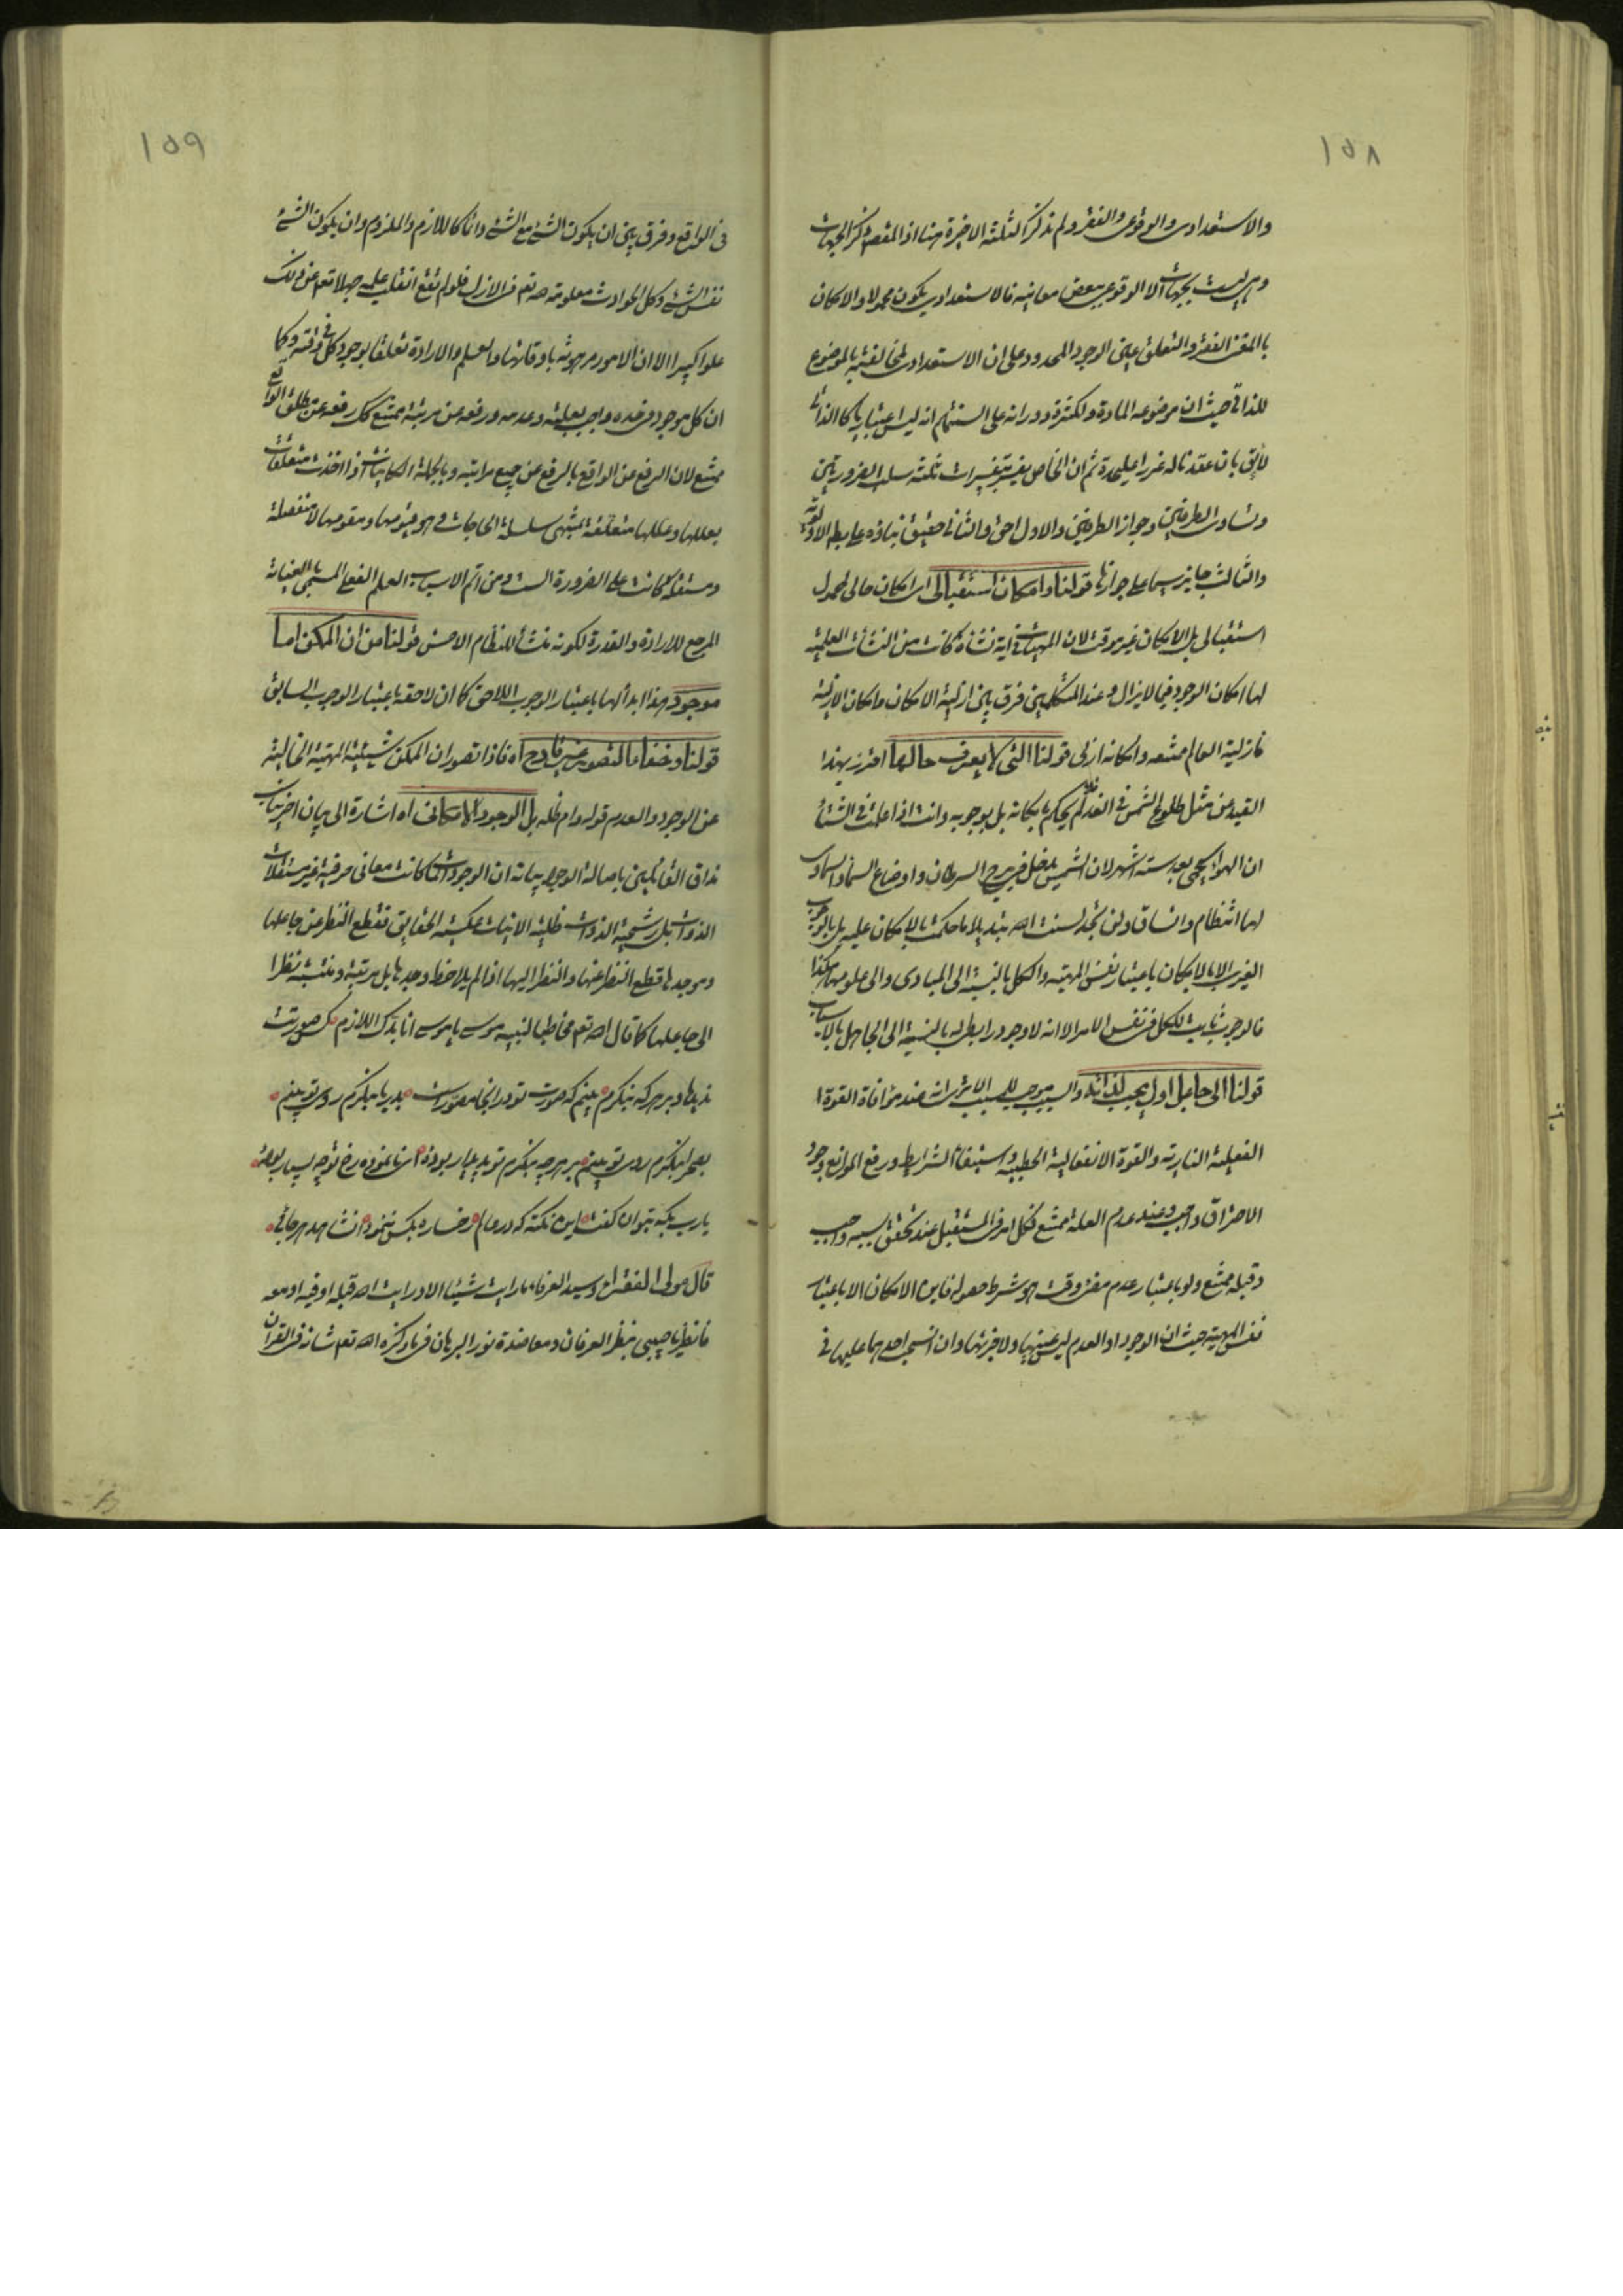 ١٥٨
والاستعدادى والوقوعى والفقر ولم نذكر الثلثة الاخيرة هنا اذ المقصود ذكر الجهات
وهى ليست بجهات الا الوقوعى ببعض معانيه فالاستعدادى يكون محمولا والامكان
بالمعنى الفقر والتعلق عين الوجود المحدود على ان الاستعدادى لمخالفته بالموضوع
للذاتى حيث ان موضوعه المادة ولكثرة دورانه على السنتهم انه ليس اعتباريا كالذاتى
لائق بان عقد ناله غررا عليحدة ثم ان الخاص يفسر بتفسيرات ثلثة سلب الضرورتين
وتساوى الطرفين وجواز الطرفين والاول احق والثانى حقيق بناؤه على بطلان الاولوية
والثالث جايز سيما على جوازها قولنا وامكان استقبالى اى امكان حالى لمحمول
استقبالى بل الامكان غير موقت لان المهيات فى اية نشاة كانت من النشأت العلمية
لها امكان الوجود فيما لا يزال وعند المتكلمين فرق بين ازلية الامكان وامكان الازلية
فازلية العالم ممتنعه وامكانه ازلى قولنا التى لا يعرف حالها احترز بهذا
القيد عن مثل طلوع الشمس فى الغد فلا يحكم بامكانه بل بوجوبه وانت اذا علمت فى الشتاء
ان الهواء يحمى بعد ستة اشهر لان الشمس يدخل فى برج السرطان واوضاع السماء والسماوى
لها انتظام واتساق ولن تجد لسنت الله تبديلا ما حكمت بالامكان عليه بل بالوجوب
الغيرى الا بالامكان باعتبار نفس المهية والكل بالنسبة الى المبادى والى علومها هكذا
فالوجوب ثابت للكل فى نفس الامر الا انه لا وجود رابطى له بالنسبة الى الجاهل بالاسباب
قولنا الى جاعل اول يجب لذاته والسبب موجب للمسبب الا ترى انه عند موافاة القوة
الفعلية النارية والقوة الانفعالية الحطبية واستيفاء الشرايط ورفع الموانع وجود
الاحتراق واجب وعند عدم العلة ممتنع فكل امر فى المستقبل عند تحقق سببه واجب
وقبله ممتنع ولو باعتبار عدم مضى وقت هو شرط حصوله فاين الامكان الا باعتبار
نفس المهية حيث ان الوجود او العدم ليس عينها ولا جزئها وان انسحب احدهما عليها فى
١٥٩
فى الواقع وفرق بين ان يكون الشئ مع الشئ دائما كاللازم والملزوم وان يكون الشئ
نفس الشئ وكل الحوادث معلومة لله تعم فى الازل فلو لم تقع انقلب علمه جهلا تعم عن ذلك
علوا كبيرا الا ان الامور مرهونة باوقاتها والعلم والارادة تعلقا بوجود كل فى وقته وكما
ان كل موجود فى حده واجب بعلته وعدمه ورفعه عن مرتبة ممتنع كك رفعه عن مطلق الواقع
ممتنع لان الرفع عن الواقع بالرفع عن جميع مراتبه وبالجملة الكاينات اذا اخذت متعلقات
بعللها وعللها متعلقة بمنتهى سلسلة الحاجات وهو قيومها ومقومها لا منفصلة
ومستقلة كانت على الضرورة البت ومن اتم الاسباب العلم الفعلى المسمى بالعناية
المرجع للارادة والقدرة لكونه منشأ للنظام الاحسن قولنا من ان الممكن اما
موجود هذا ابدائها باعتبار الوجوب اللاحق كما ان لاحقه باعتبار الوجوب السابق
قولنا وخفاء التصور غير قادح اه فاذا تصور ان الممكن شيئية المهية الخالية
عن الوجود والعدم قوله دام ظله بل الوجود الامكانى اه اشارة الى بيان اخر يناسب
مذاق القائلين باصالة الوجود بيانه ان الوجودات لما كانت معانى حرفية غير مستقلات
الذوات بل شيئية الذوات ظلية الانيات عكسية الحقايق فقطع النظر عن جاعلها
وموجدها قطع النظر عنها والنظر اليها اذا لم يلاحظ وحدها بل مرتبة ومنتسبة نظر
الى جاعلها كما قال الله تعم مخاطبا لنبيه موسى يا موسى انا بدك اللازم عكس صورتت
نديدها دبر هر كه بنكرم بينم كه صورت تو در انجا مصور است بدريا بنكرم روى تو بينم
بصحرا بنكرم روى تو بينم بهر چه بنكرم تو پديدار بوده اى نانموده رخ تو چه بسيار بوده
يارب بكه بتوان كفت اين نكته كه در عالم رخساره بكس ننمود انشاهد هر جائى
قال مولى الفقراء وسيد العرفاء ما رايت شيئا الا ورايت الله قبله او فيه او معه
فانظر يا حبيبى بنظر العرفان ومعاضدة نور البرهان فى ما ذكره الله تعم شانه فى القران